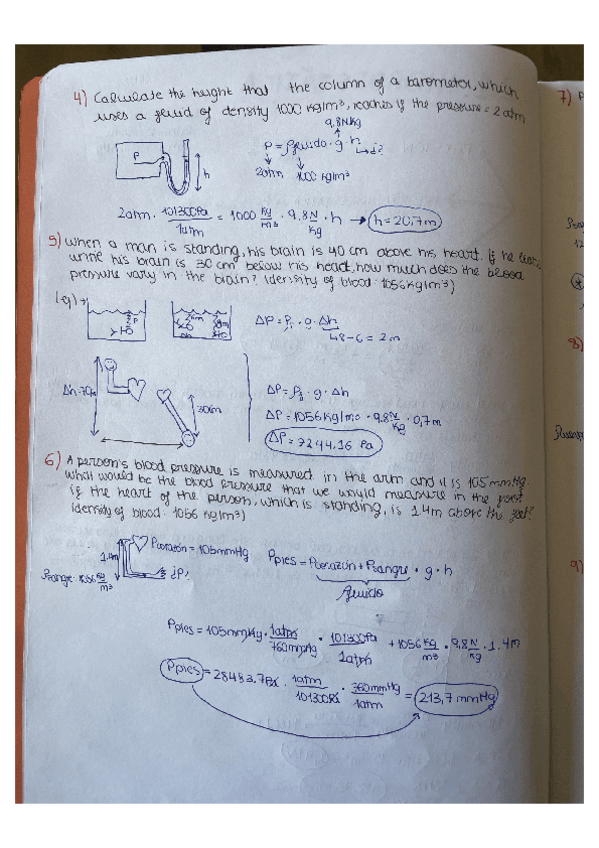 4) Calculate the height that the column of a barometer, which
uses a fluid of density 1000 kg/m³, reaches if the pressure = 2 atm
9.8N/kg
P = ρfluido · g · h
P
h
2atm
1000 kg/m³
¿?
2atm · 101300Pa / 1atm = 1000 kg/m³ · 9,8 N/kg · h → h = 20,7m
5) When a man is standing, his brain is 40 cm above his heart. If he
his brain is 30 cm below his heart, how much does the blood
pressure vary in the brain? (density of blood: 1056kg/m³)
P
ΔP = ρ · g · Δh
48-6 = 2m
Δh
30cm
ΔP = ρ · g · Δh
ΔP = 1056 kg/m³ · 9,8 N/kg · 0,7m
ΔP = 7244.16 Pa
6) A person's blood pressure is measured in the arm and it is 105 mmHg.
What would be the blood pressure that we would measure in the
if the heart of the person, which is standing, is 1.4m above the feet?
(density of blood: 1056 kg/m³)
1.4m
Pcorazón = 105mmHg
Ppies = Pcorazón + ρsangre · g · h
fluido
ρsangre · 1056 kg/m³
Ppies = 105mmHg · 1atm / 760mmHg · 101300Pa / 1atm + 1056 kg/m³ · 9,8 N/kg · 1.4m
Ppies = 28483.7Pa · 1atm / 101300Pa · 760mmHg / 1atm = 213,7 mmHg
7)
8)
9)